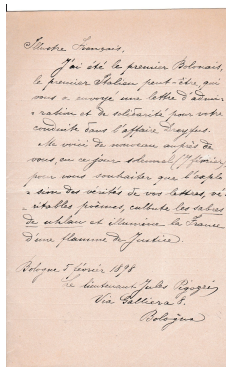 Illustre Français,
J'ai été le premier Bolonais,
le premier Italien peut-être, qui
vous a envoyé une lettre d'admi-
ration et de solidarité pour votre
conduite dans l'affaire Dreyfus.
Me voici de nouveau auprès de
vous, en ce jour solennel (7 février)
pour vous souhaiter que l'explo-
sion des vérités de vos lettres, vé-
ritables poèmes, culbute les sabres
de uhlan et illumine la France
d'une flamme de Justice
Bologne 5 février 1898
le lieutenant Jules
Via Galliera 8.
Bologna